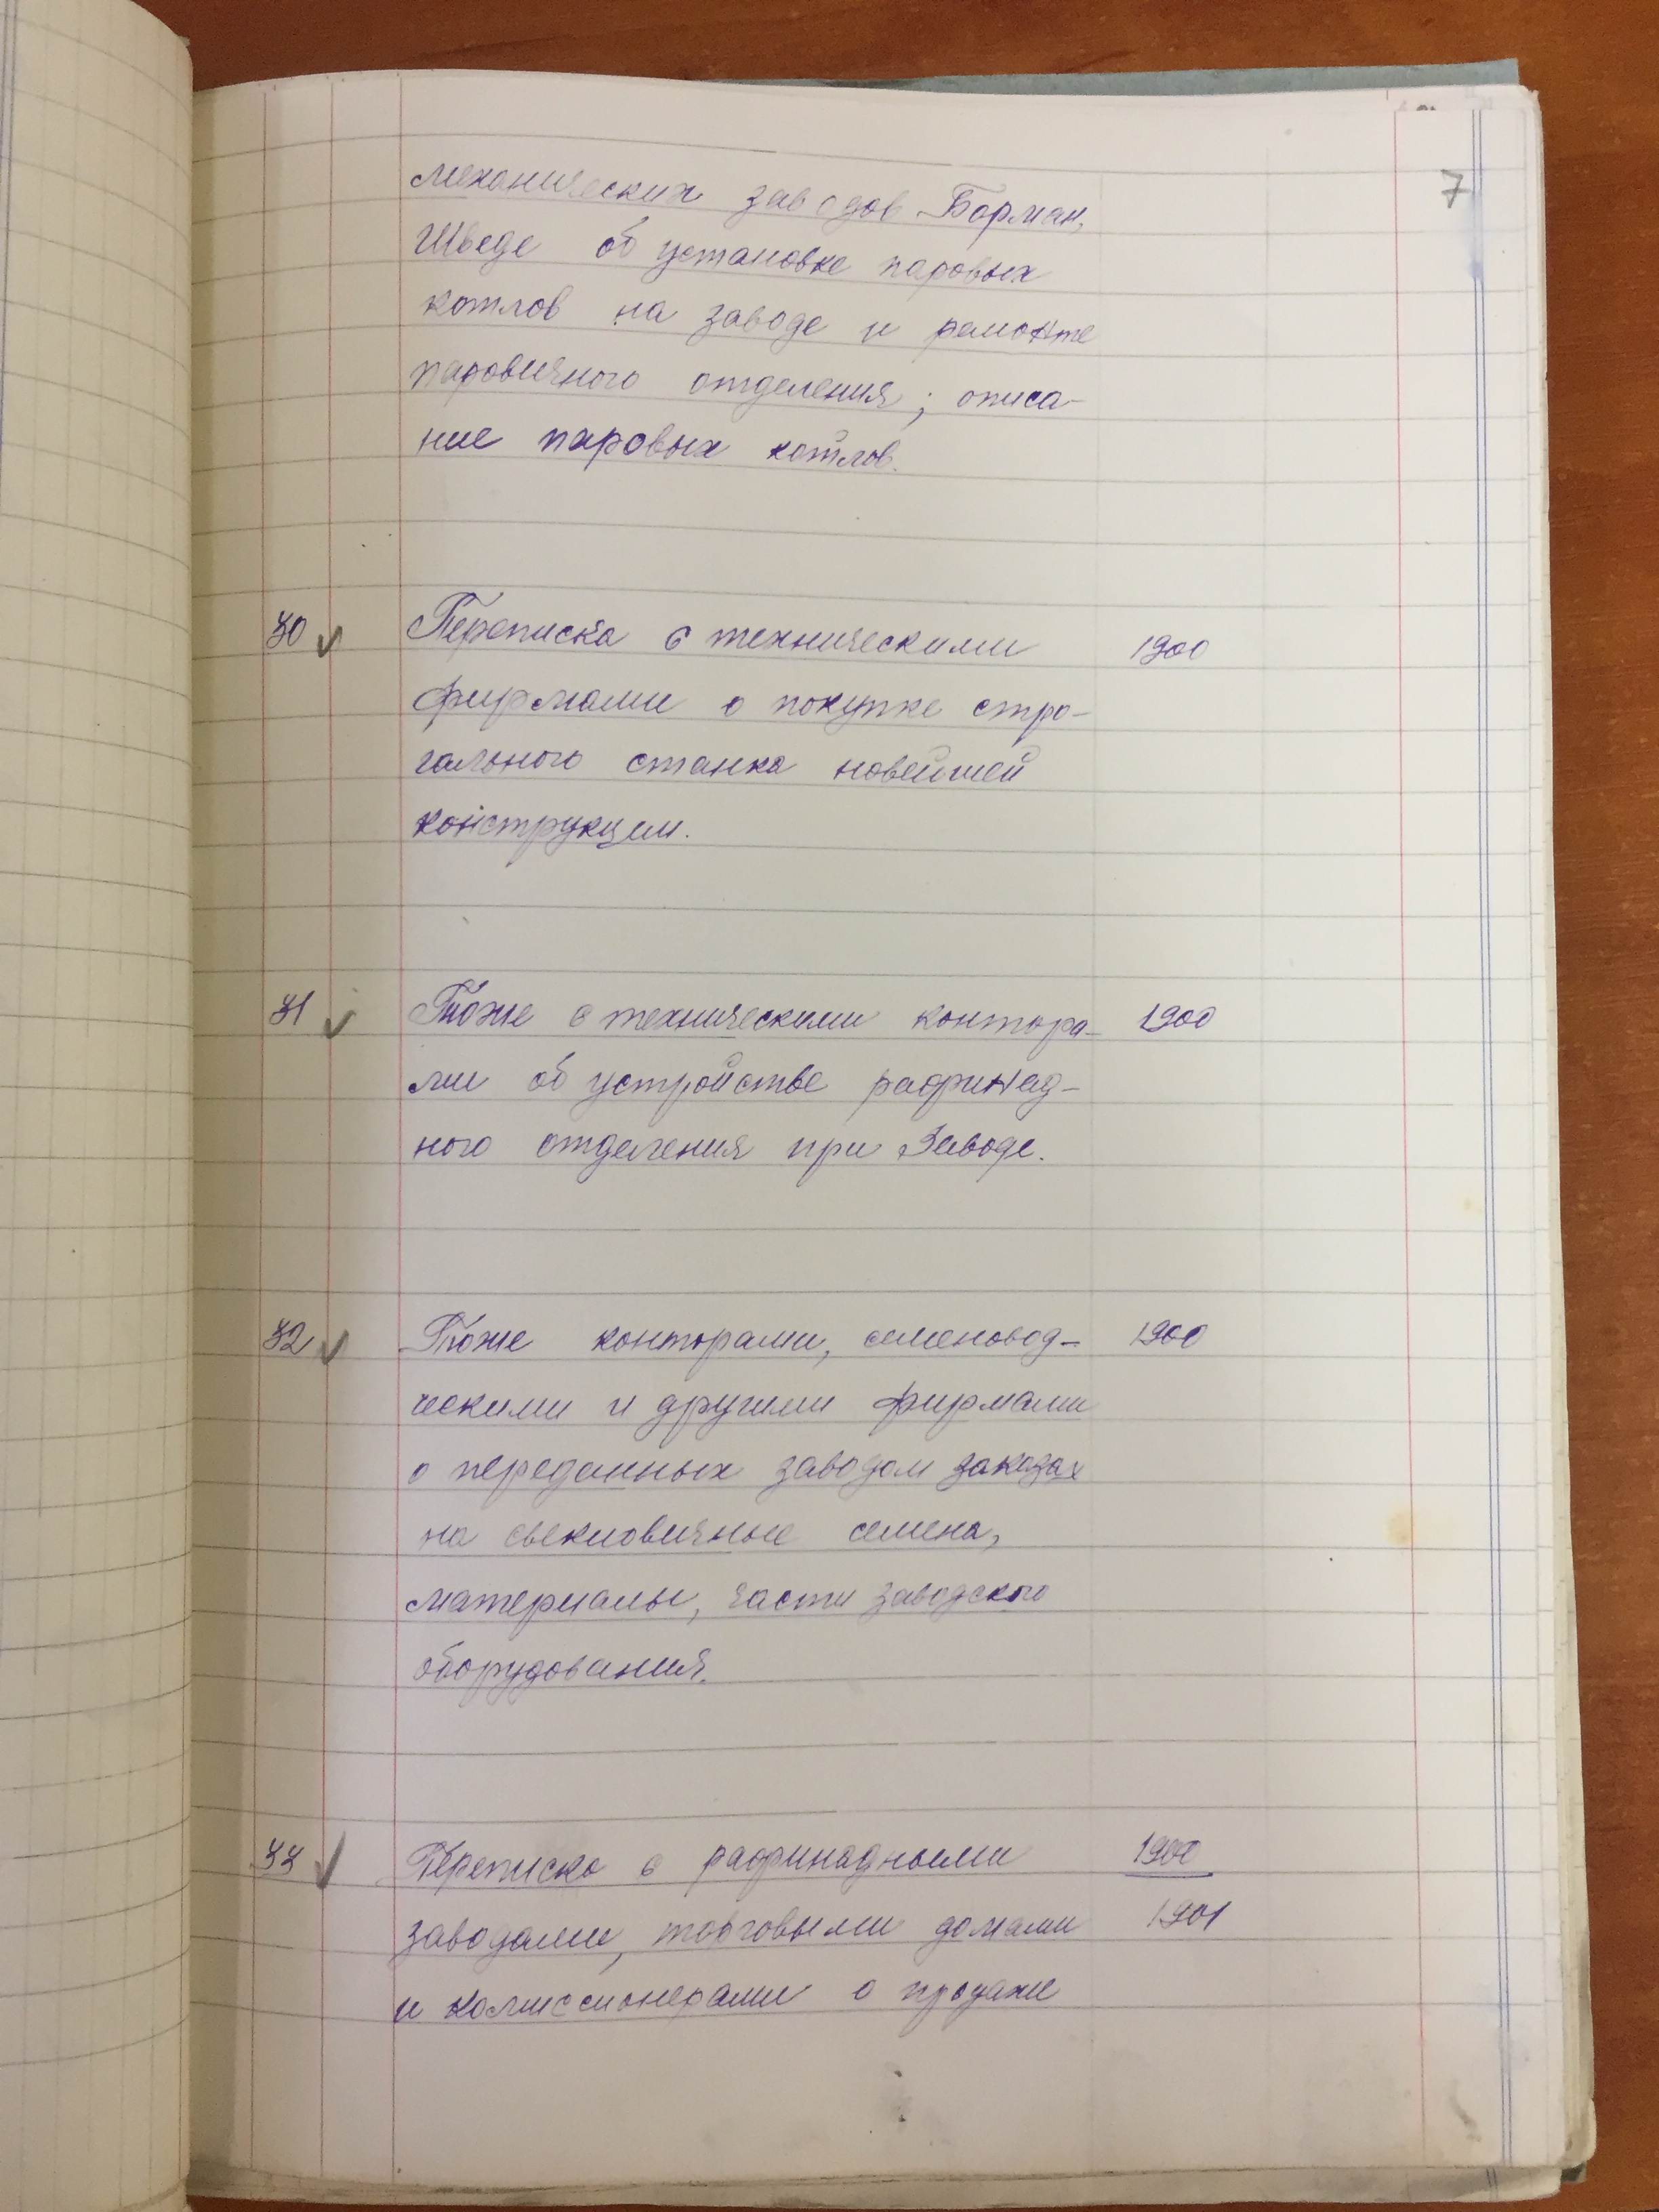 7
механических заводов Борман,
Шведе об установке паровых
котлов на заводе и ремонте
паровичного отделения; описа-
ние паровых котлов.
30 ✓ Переписка с техническими 1900
фирмами о покупке стро-
гального станка новейшей
конструкции.
31 ✓ Тоже с техническими контора- 1900
ми об устройстве рафинад-
ного отделения при Заводе.
32 ✓ Тоже конторами, семеновод- 1900
ческими и другими фирмами
о переданных заводом заказах
на свекловичные семена,
материалы, части заводского
оборудования.
33 ✓ Переписка с рафинадными 1900
заводами, торговыми домами 1901
и комиссионерами о продаже